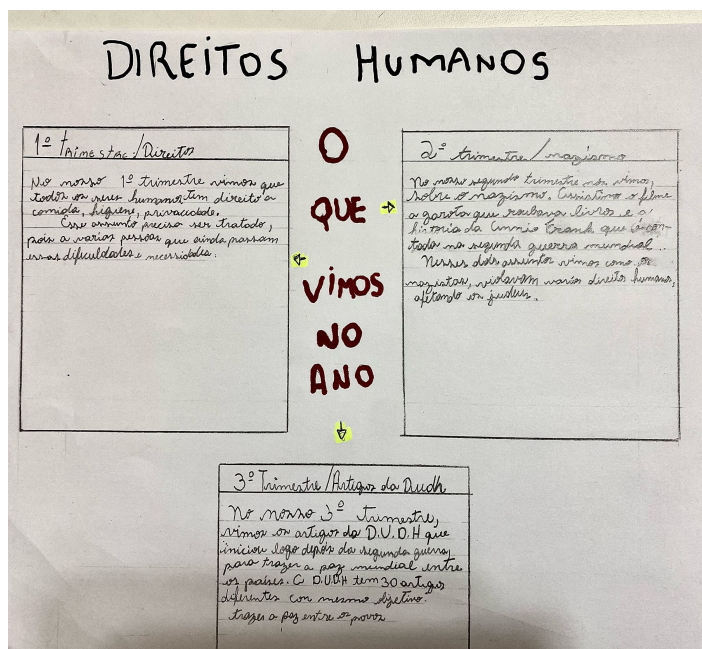 DIREITOS HUMANOS
1º trimestre/Direitos
No nosso 1º trimestre vimos que
todos os seres humanos tem direito a
comida, higiene, privacidade.
Esse assunto precisa ser tratado,
pois a varias pessoas que ainda passam
essas dificuldades e necessidades.
O
QUE
VIMOS
NO
ANO
2º trimestre/nazismo
No nosso segundo trimestre nós vimos
sobre o nazismo. Assistimos o filme
a garota que roubava livros e a
historia da Annie Frank que é con-
tada na segunda guerra mundial.
Nesses dois assuntos vimos como os
nazistas, violavam varios direitos humanos,
afetando os judeus.
3º Trimestre/Artigos da Dudh
No nosso 3º trimestre,
vimos os artigos da D.U.D.H que
iniciou logo depois da segunda guerra,
para trazer a paz mundial entre
os países. A D.U.DH tem 30 artigos
diferentes com mesmo objetivo.
trazer a paz entre os povos